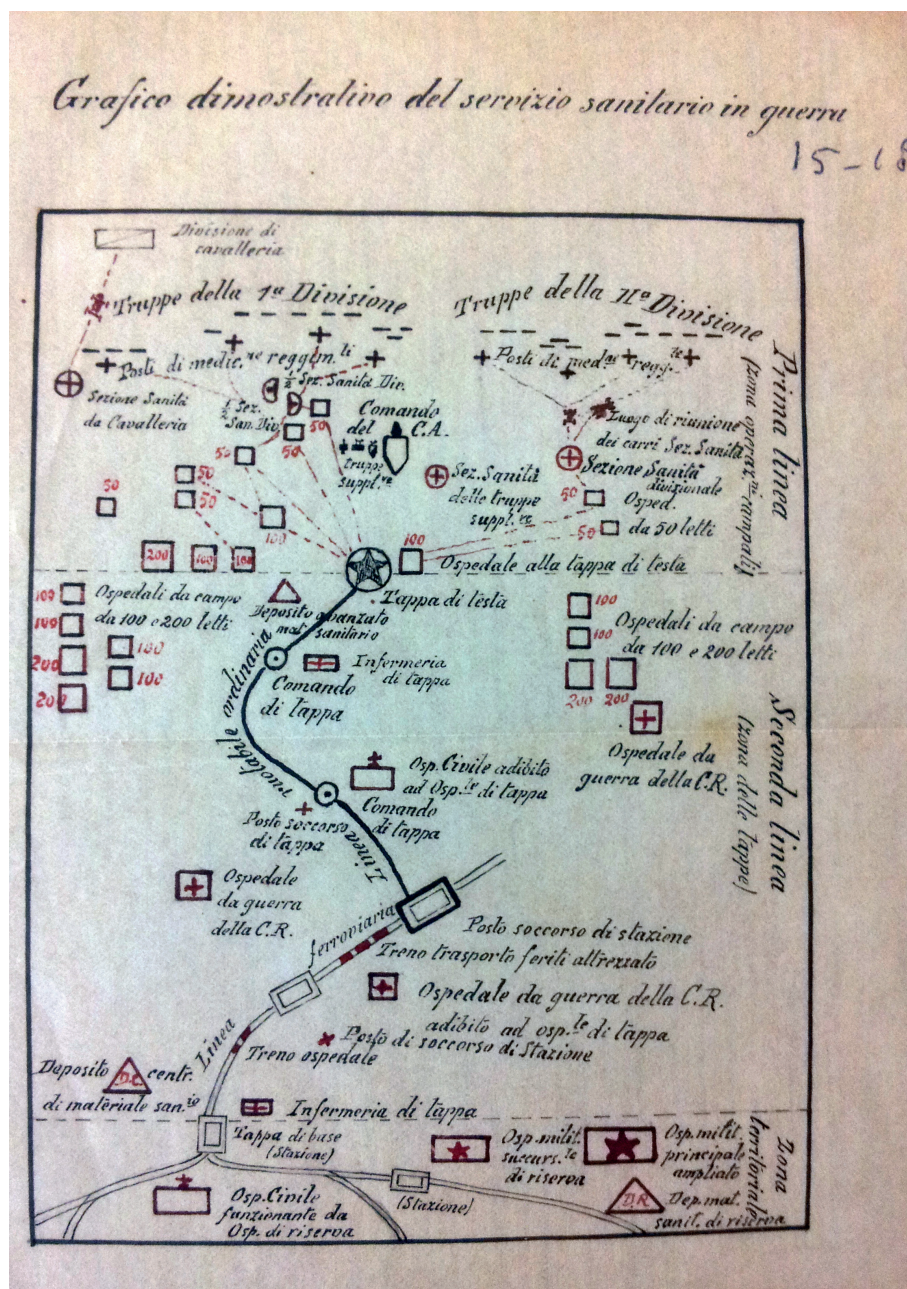 Grafico dimostrativo del servizio sanitario in guerra
15-18
Divisione di
cavalleria
Truppe della 1ª Divisione
Truppe della IIª Divisione
Posti di medic.ne reggim.li
Posti di med.ne regg.le
Sezione Sanità
da Cavalleria
1/2 Sez. Sanità Div.
1/2 Sez.
San. Div.
Comando
del C.A.
truppe
suppl.re
Sez. Sanità
delle truppe
suppl.re
Luogo di riunione
dei carri Sez. Sanità
Sezione Sanità
divisionale
Osped.
da 50 letti
50
50
50
50
50
50
50
50
100
200
100
100
100
Prima linea
(zona operaz.ni campali)
Ospedale alla tappa di testa
Tappa di testa
100
100
200
200
Ospedali da campo
da 100 e 200 letti
100
100
Deposito avanzato
mat. sanitario
Infermeria
di tappa
Comando
di tappa
100
100
200
200
Ospedali da campo
da 100 e 200 letti
Ospedale da
guerra della C.R.
Seconda linea
(zona delle tappe)
Linea rotabile ordinaria
Osp. Civile adibito
ad Osp.le di tappa
Comando
di tappa
Posto soccorso
di tappa
Ospedale
da guerra
della C.R.
Linea ferroviaria
Posto soccorso di stazione
Treno trasporto feriti attrezzato
Ospedale da guerra della C.R.
adibito ad osp.le di tappa
Posto di soccorso di Stazione
Treno ospedale
Deposito D.C. centr.
di materiale san.rio
Infermeria di tappa
Tappa di base
(Stazione)
Osp. milit.
succurs.le
di riserva
Osp. milit.
principale
ampliato
Zona
territoriale
Osp. Civile
funzionante da
Osp. di riserva
(Stazione)
D.R.
Dep. mat.
sanit. di riserva